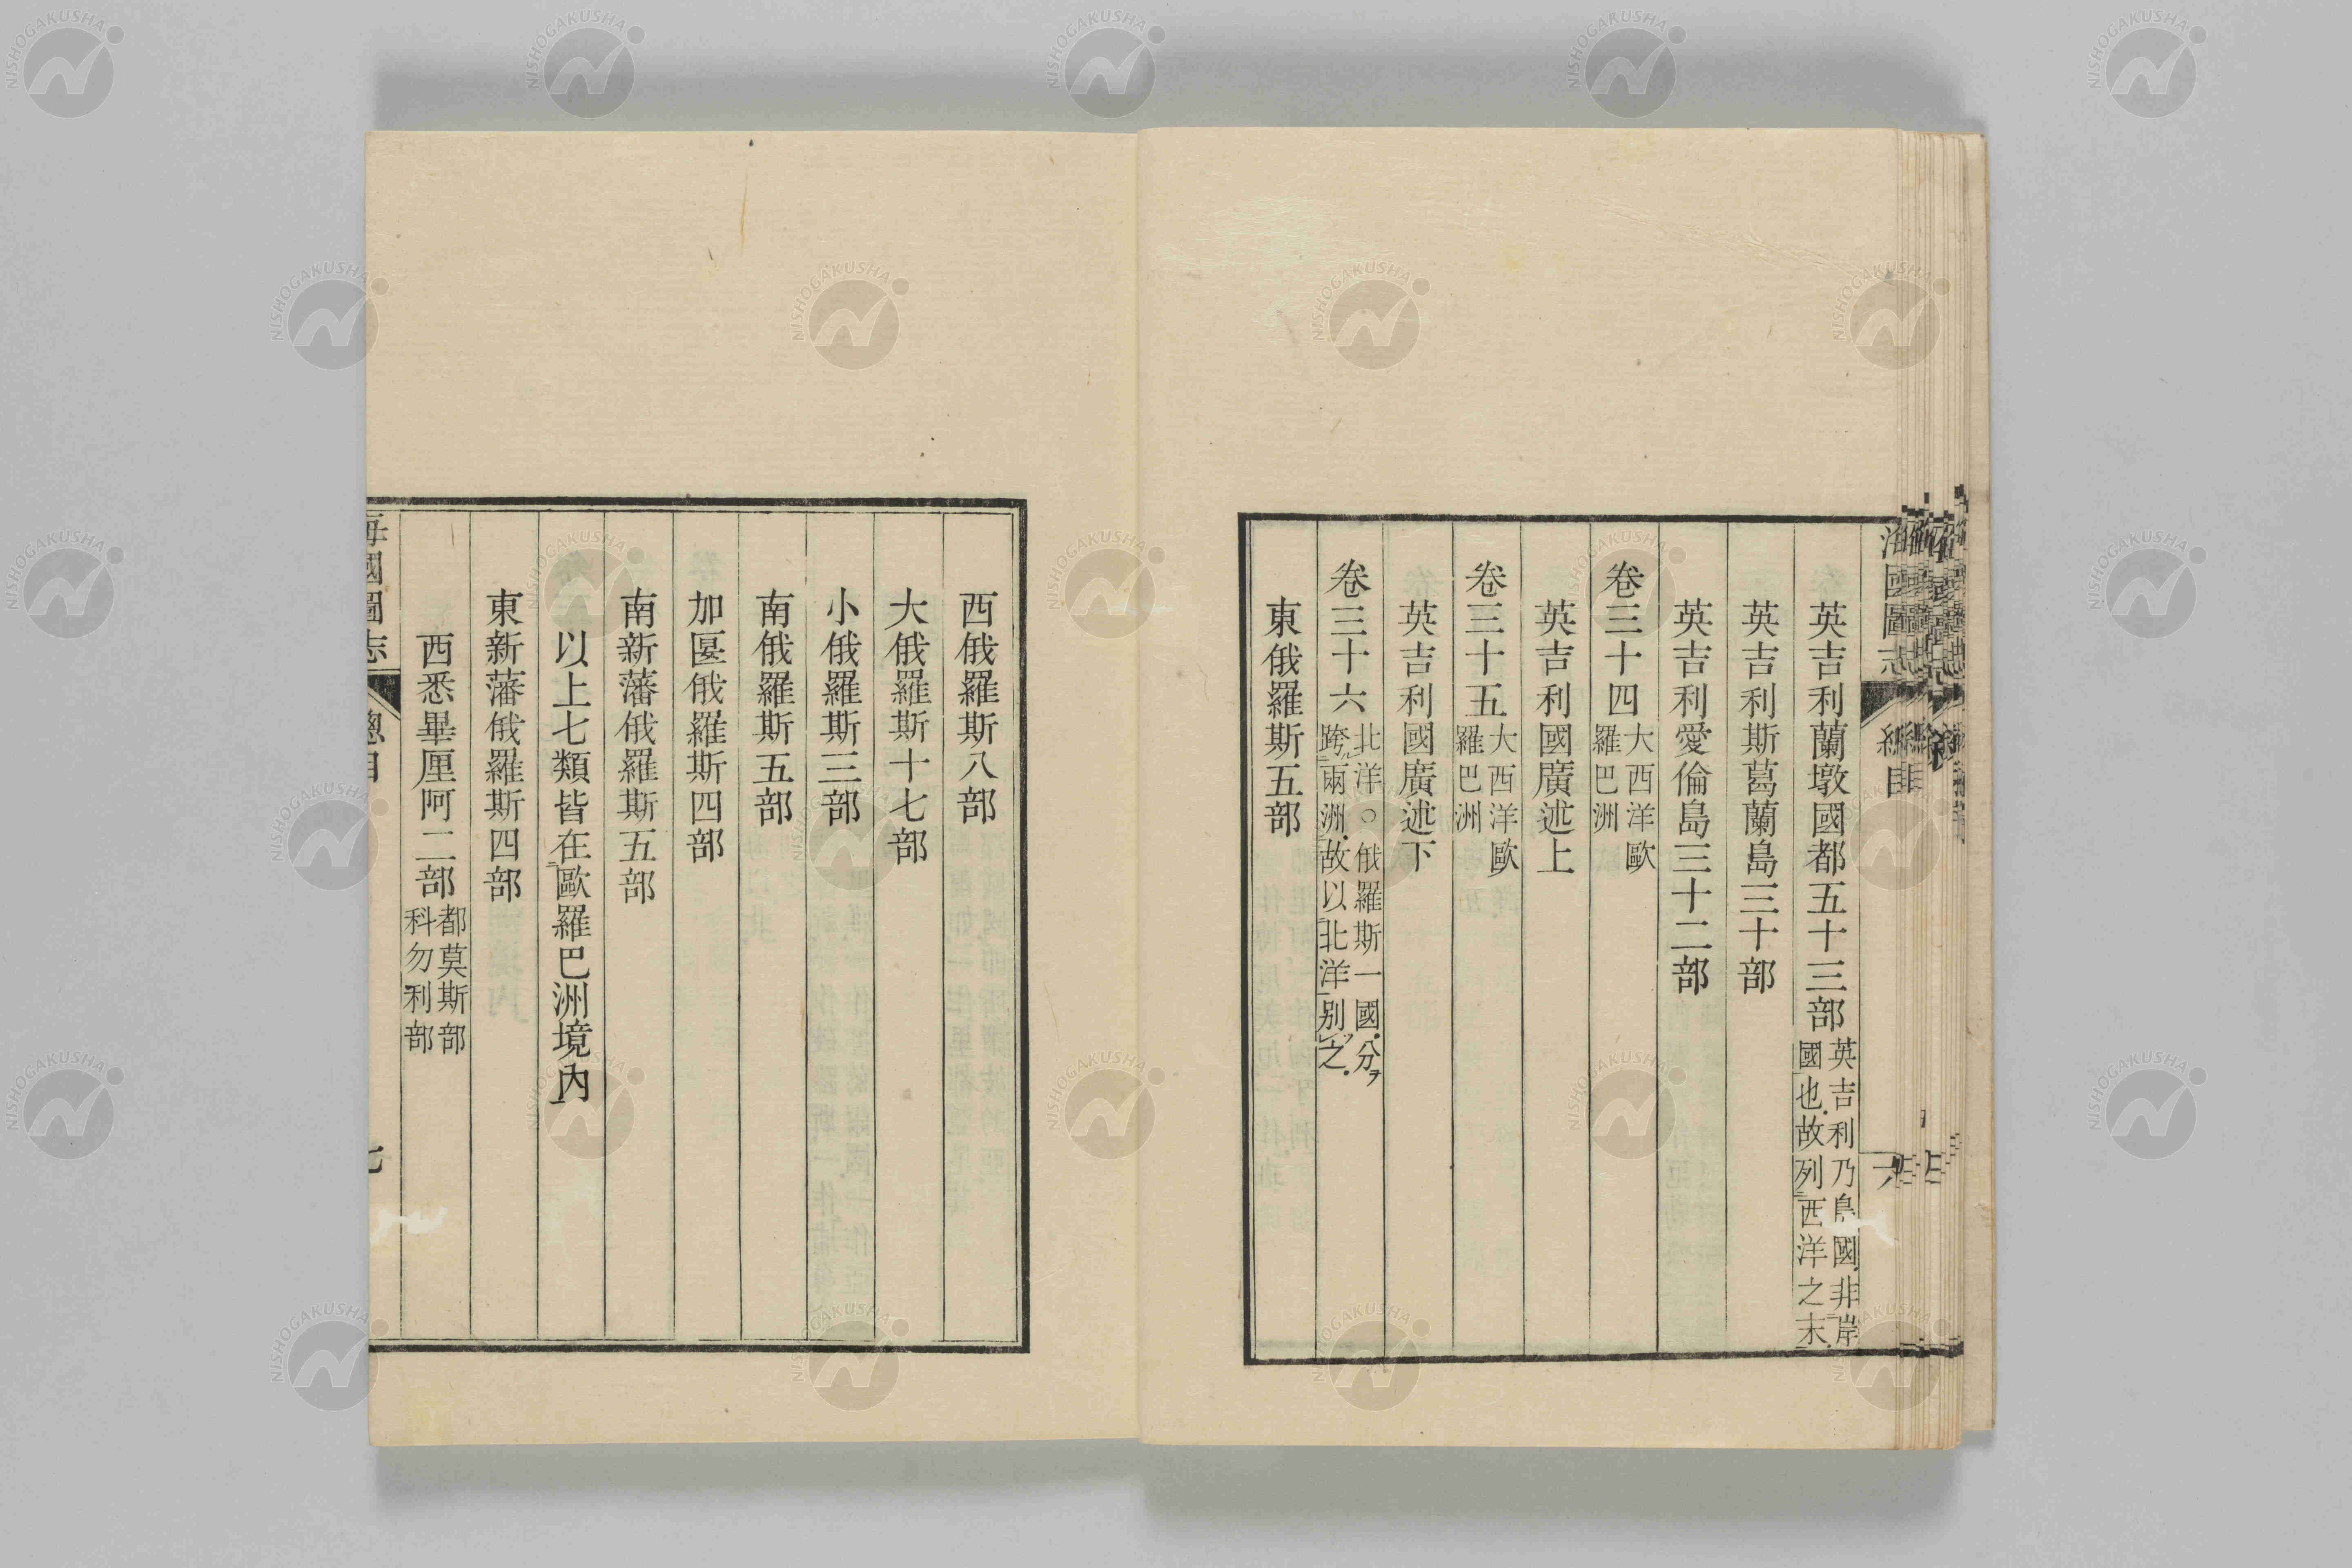 英吉利蘭墩國都五十三部
英吉利乃島國非岸
國也故列西洋之末
英吉利斯葛蘭島三十部
英吉利愛倫島三十二部
卷三十四
大西洋歐
羅巴洲
英吉利國廣述上
卷三十五
大西洋歐
羅巴洲
英吉利國廣述下
卷三十六
北洋○俄羅斯一國分ヲ
跨兩洲故以北洋別之
東俄羅斯五部
西俄羅斯八部
大俄羅斯十七部
小俄羅斯三部
南俄羅斯五部
加匽俄羅斯四部
南新藩俄羅斯五部
以上七類皆在歐羅巴洲境內
東新藩俄羅斯四部
西悉畢厘阿二部
都莫斯部
科勿利部
海國圖志
總目
七
NISHOGAKUSHA